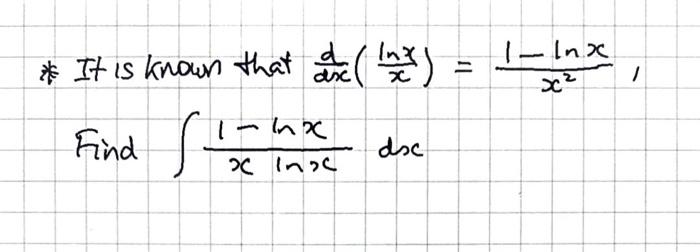 * It is known that d/dx (ln x / x) = (1 - ln x) / x² ,
Find ∫ (1 - ln x) / (x ln x) dx